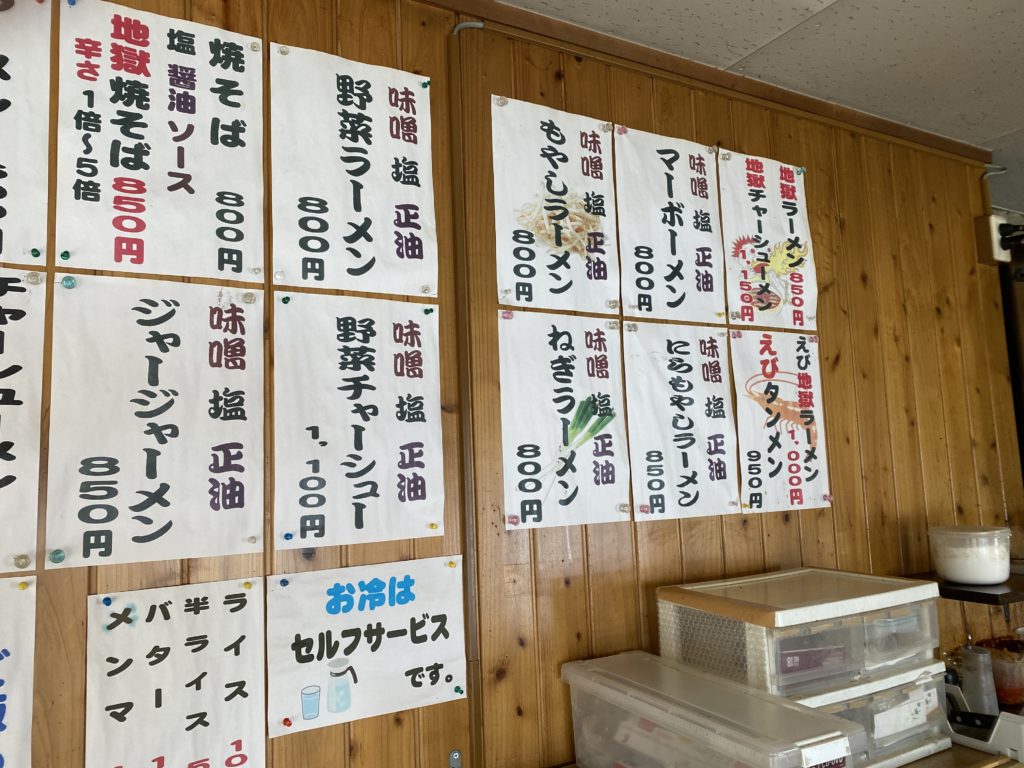 焼そば 800円
塩 醤油 ソース
地獄焼そば 850円
辛さ 1倍~5倍
味噌 塩 正油
野菜ラーメン
800円
味噌 塩 正油
ジャージャーメン
850円
味噌 塩 正油
野菜チャーシュー
1,100円
味噌 塩 正油
もやしラーメン
800円
味噌 塩 正油
マーボーメン
800円
地獄ラーメン 850円
地獄チャーシューメン
1,150円
味噌 塩 正油
ねぎラーメン
800円
味噌 塩 正油
にらもやしラーメン
850円
えび地獄ラーメン
1,000円
えびタンメン
950円
チャーシューメン
ライス
半ライス
バター
メンマ
お冷は
セルフサービス
です。